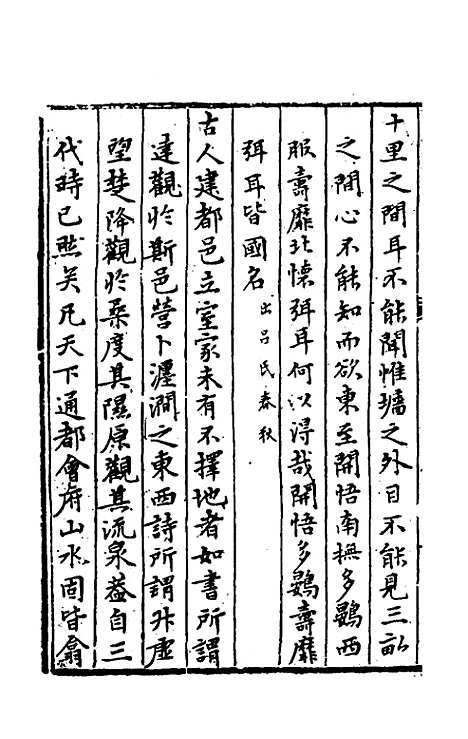 十里之間耳不能聞帷墻之外目不能見三畝
之間心不能知而欲東至開悟南撫多鷃西
服壽靡北懷弭耳何以得哉開悟多鷃壽靡
弭耳皆國名出呂氏春秋
古人建都邑立室家未有不擇地者如書所謂
達觀於新邑營卜瀍澗之東西詩所謂升虛
望楚降觀於桑度其隰原觀其流泉葢自三
代時已然矣凡天下通都會府山水固皆翕